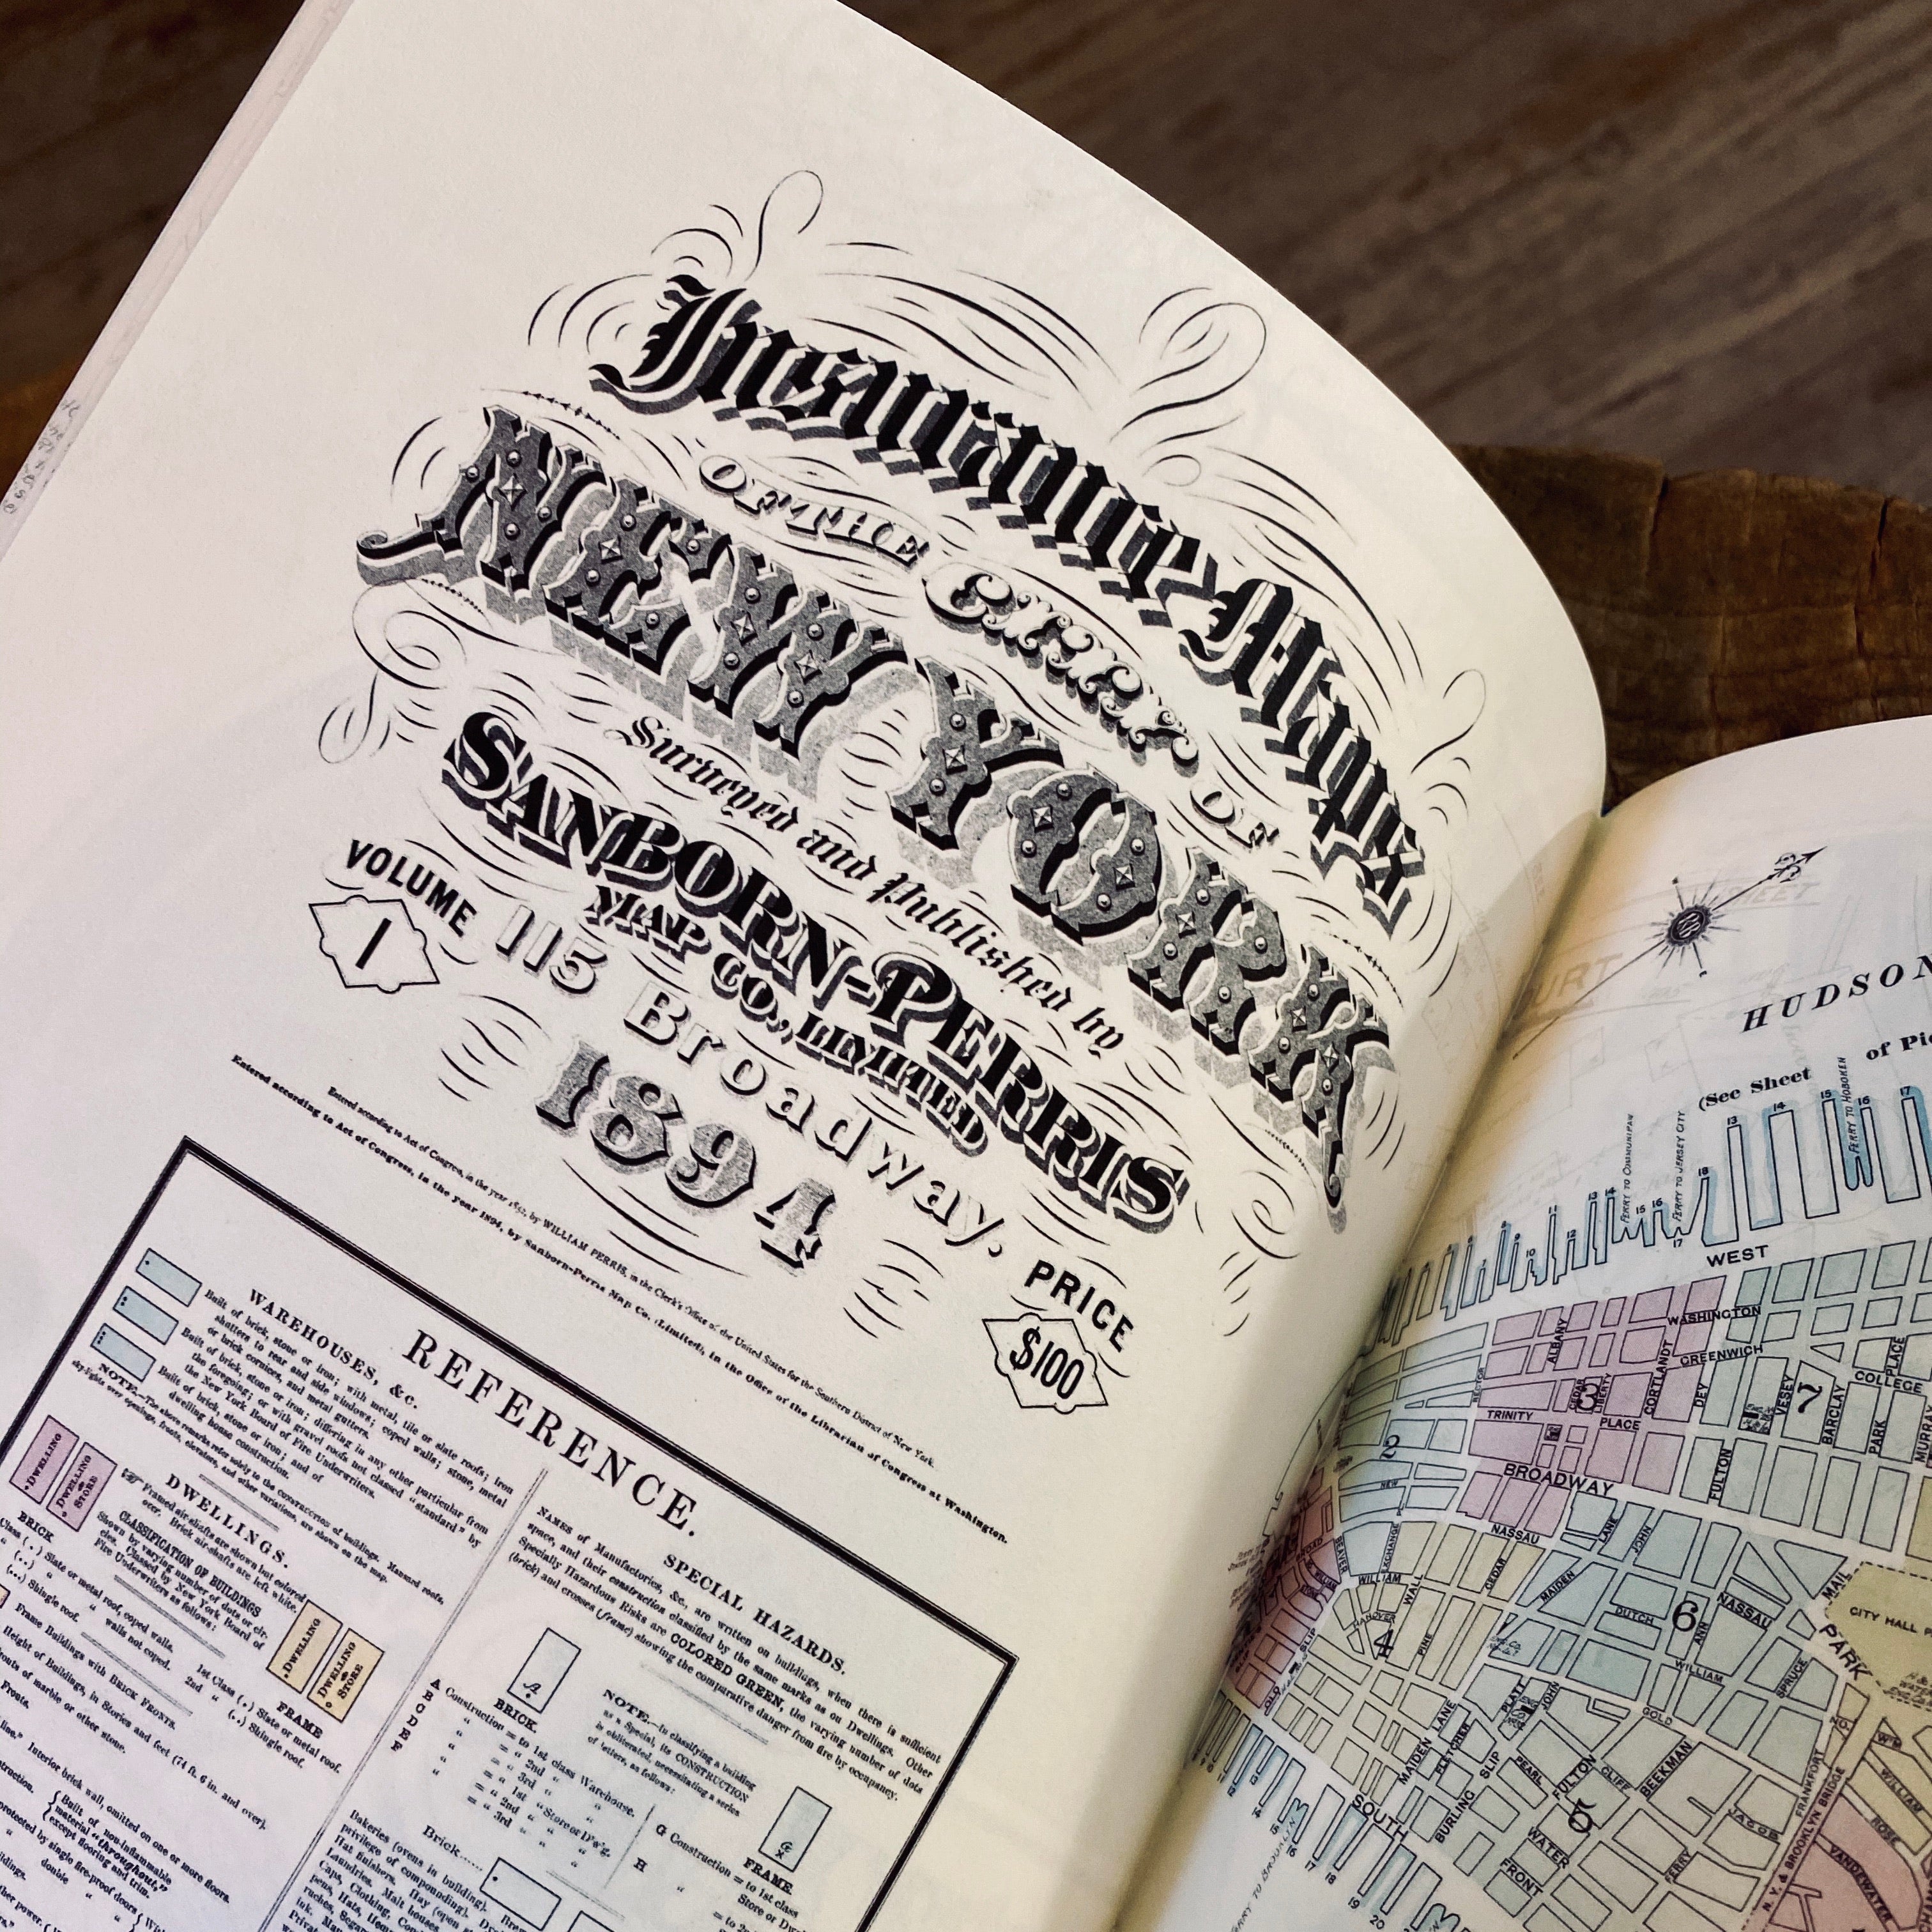 Insurance Maps
OF THE CITY OF
NEW YORK
Surveyed and Published by
SANBORN-PERRIS
MAP CO., LIMITED
115 Broadway.
1894
VOLUME
1
PRICE
$100
Entered according to Act of Congress, in the year 1852, by WILLIAM PERRIS, in the Clerk's Office of the United States for the Southern District of New York.
Entered according to Act of Congress, in the year 1894, by Sanborn-Perris Map Co. (Limited), in the Office of the Librarian of Congress at Washington.
REFERENCE.
WAREHOUSES, &c.
Built of brick, stone or iron; with metal, tile or slate roofs; iron
shutters to rear and side windows; coped walls; stone, metal
or brick cornices, and metal gutters.
Built of brick, stone or iron; differing in any other particular from
the foregoing; or with gravel roofs not classed "standard" by
the New York Board of Fire Underwriters.
Built of brick, stone or iron; and of
dwelling house construction.
NOTE.—The above remarks refer solely to the CONSTRUCTION of buildings. Mansard roofs,
sky-lights over openings, elevators, and other variations, are shown on the map.
DWELLING
DWELLING & STORE
BRICK
DWELLINGS.
Framed air-shafts are shown but colored
over. Brick air-shafts are left white.
CLASSIFICATION OF BUILDINGS
Shown by varying number of dots or cir-
cles. Classed by New York Board of
Fire Underwriters as follows:
Class (.) Slate or metal roof, coped walls.
(..) " " walls not coped.
(...) Shingle roof.
DWELLING
DWELLING & STORE
FRAME
1st Class (.) Slate or metal roof.
2nd " (..) Shingle roof.
Frame Buildings with BRICK FRONTS.
Height of Buildings, in Stories and feet (74 ft. 6 in. and over).
Fronts of marble or other stone.
Fronts.
line." Interior brick wall, omitted on one or more floors.
Built of non-inflammable
material "throughout,"
except flooring and trim.
protected by single fire-proof doors
double "
SPECIAL HAZARDS.
NAMES of Manufactories, &c., are written on buildings, when there is sufficient
space, and their construction classified by the same marks as on Dwellings. Other
Specially Hazardous Risks are COLORED GREEN, the varying number of dots
(brick) and crosses (frame) showing the comparative danger from fire by occupancy.
A
BRICK.
NOTE.—In classifying a building
as a Special, its CONSTRUCTION
is obliterated, necessitating a series
of letters, as follows:
A Construction = to 1st class Warehouse.
B " = " 2nd " "
C " = " 3rd " "
D " = " 1st " Store or D'w'g.
E " = " 2nd " "
F " = " 3rd " "
G Construction = to 1st class
H
FRAME.
Brick
Bakeries (ovens in building).
privilege of compounding).
Hat finishers. Hay (open
Laundries. Malt houses.
HUDSON
(See Sheet
FERRY TO COMMUNIPAW
FERRY TO JERSEY CITY
FERRY TO HOBOKEN
13
14
15
16
17
WEST
WASHINGTON
GREENWICH
ALBANY
CEDAR
LIBERTY
CORTLANDT
DEY
VESEY
BARCLAY
PARK
PLACE
COLLEGE
MURRAY
TRINITY
PLACE
FULTON
RECTOR
BROADWAY
2
3
7
NEW
NASSAU
LANE
JOHN
EXCHANGE
WILLIAM
WALL
CEDAR
MAIDEN
DUTCH
ANN
6
NASSAU
MAIL
CITY HALL
PARK
HANOVER
PINE
4
WILLIAM
SPRUCE
SLIP
OLD
PLATT
JOHN
GOLD
MAIDEN LANE
FLETCHER
SLIP
PEARL
FULTON
CLIFF
BEEKMAN
FRANKFORT
BURLING
SOUTH
WATER
FRONT
FERRY
JACOB
N.Y. & BROOKLYN BRIDGE
WILLIAM
ROSE
VANDEWATER
16
17
18
19
20